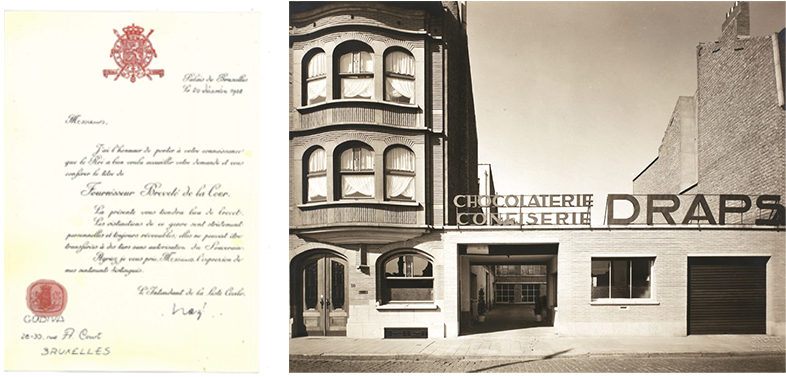 Palais de Bruxelles
Le 20 décembre 19
Messieurs,
J'ai l'honneur de porter à votre connaissance
que le Roi a bien voulu accueillir votre demande et vous
conférer le titre de
Fournisseur Breveté de la Cour.
La présente vous tiendra lieu de brevet.
Les distinctions de ce genre sont strictement
personnelles et toujours révocables; elles ne peuvent être
transférées à des tiers sans autorisation du Souverain.
Agréez je vous prie, Messieurs l'expression de
mes sentiments distingués.
L'Intendant de la Liste Civile.
GODIVA
28-30, rue A. Court
BRUXELLES
CHOCOLATERIE
CONFISERIE
DRAPS